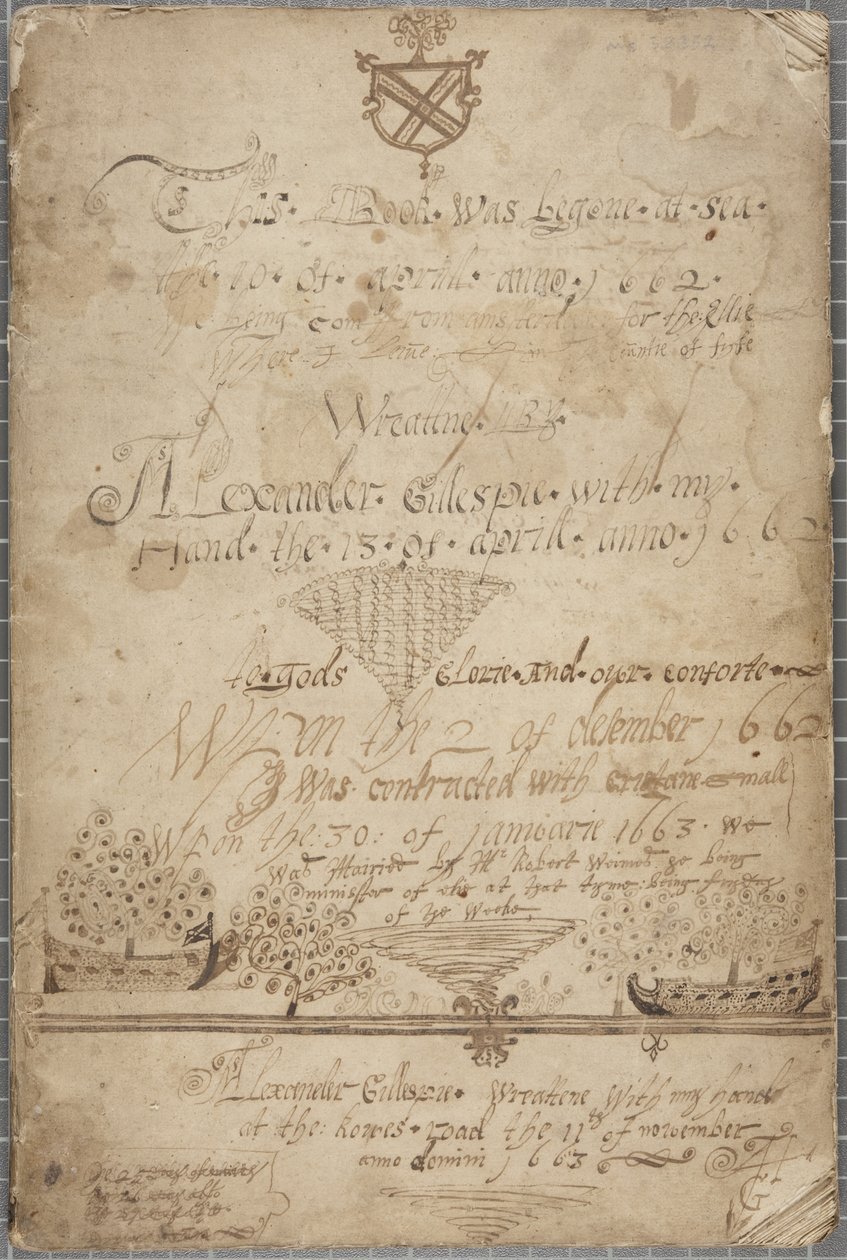 This Book was begone at sea
the 10 of aprill anno 1662
being com from amsterdam for the Ellie
Where I Leive in countie of fyfe
Wreattne BY
ALexander Gillespie with my
Hand the 13 of aprill anno 1662
to gods Glorie And our conforte
Wpon the 2 of desember 1662
I Was contracted with cristane small
Wpon the 30 of januarie 1663 we
was Mairied by Mr Robert Weimes he being
minister of elie at that tyme being
of ye Weeke
ALexander Gillespie Wreattene With my hand
at the kowes road the 11th of november
anno domini 1663